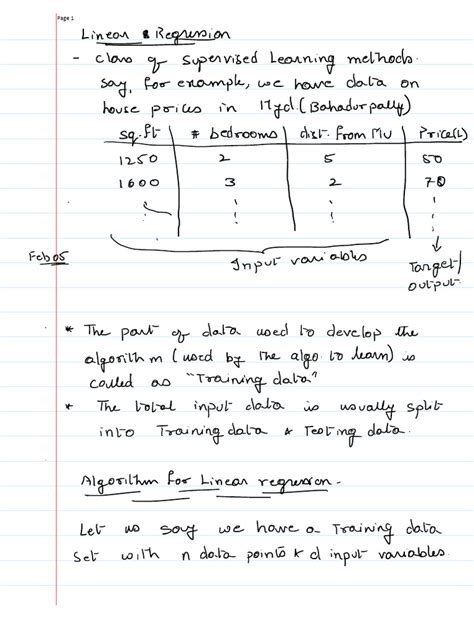 Page 1
Linear Regression
- class of supervised learning methods.
say, for example, we have data on
house prices in Hyd. (Bahadurpally)
sq.ft | # bedrooms | dist. from MU | Price(L)
1250 | 2 | 5 | 50
1600 | 3 | 2 | 70
Feb 05
Input variables
Target/
output
* The part of data used to develop the
algorithm (used by the algo. to learn) is
called as "Training data"
* The total input data is usually split
into Training data & Testing data.
Algorithm for Linear regression.
Let us say we have a Training data
set with n data points & d input variables.